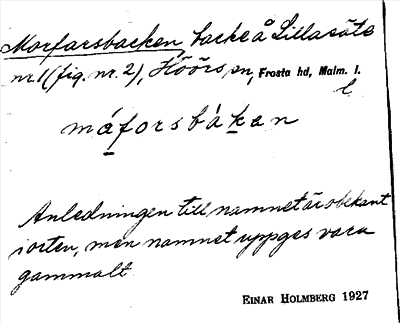 Morfarsbacken, backe å Lillasäte
nr. 1 (fig. nr. 2), Höörs sn, Frosta hd, Malm. l.
máforsbákan
Anledningen till namnet är obekant
i orten, men namnet uppges vara
gammalt
EINAR HOLMBERG 1927